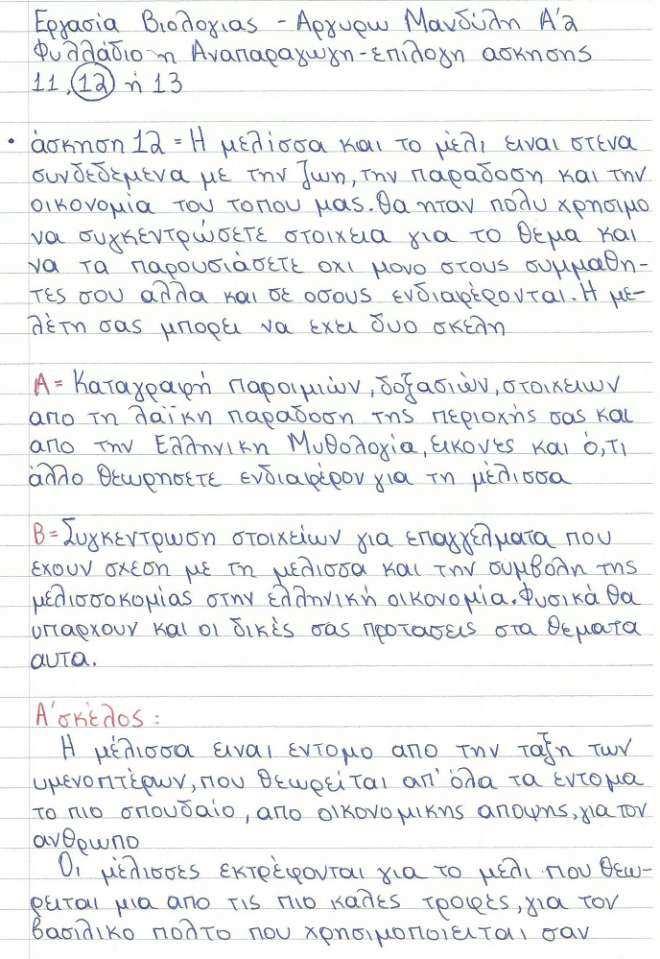 Εργασία Βιολογιας - Αργυρω Μανδύλη Α'2
Φυλλάδιο η Αναπαραγωγη-επιλογη ασκησης
11, 12 ή 13
• άσκηση 12 = Η μελίσσα και το μέλι ειναι στενα
συνδεδεμενα με την ζωη, την παραδοση και την
οικονομία του τοπου μας. Θα ηταν πολυ χρησιμο
να συγκεντρώσετε στοιχεια για το θεμα και
να τα παρουσιάσετε οχι μονο στους συμμαθη-
τες σου αλλα και σε οσους ενδιαφέρονται. Η με-
λέτη σας μπορει να εχει δυο σκελη
Α = Καταγραφή παροιμιών, δοξασιών, στοιχειων
απο τη λαϊκη παραδοση της περιοχής σας και
απο την Ελληνικη Μυθολογία, εικονες και ό,τι
άλλο θεωρησετε ενδιαφέρον για τη μέλισσα
Β = Συγκεντρωση στοιχείων για επαγγέλματα που
εχουν σχεση με τη μελισσα και την συμβολη της
μελισσοκομίας στην ελληνική οικονομια. Φυσικά θα
υπαρχουν και οι δικές σας προτασεις στα θεματα
αυτα.
Α' σκέλος:
Η μέλισσα ειναι εντομο απο την ταξη των
υμενοπτέρων, που θεωρείται απ' όλα τα έντομα
το πιο σπουδαίο, απο οικονομικης αποψης, για τον
ανθρωπο
Οι μέλισσες εκτρέφονται για το μελι που θεω-
ρειται μια απο τις πιο καλες τροφές, για τον
βασιλικο πολτο που χρησιμοποιειται σαν